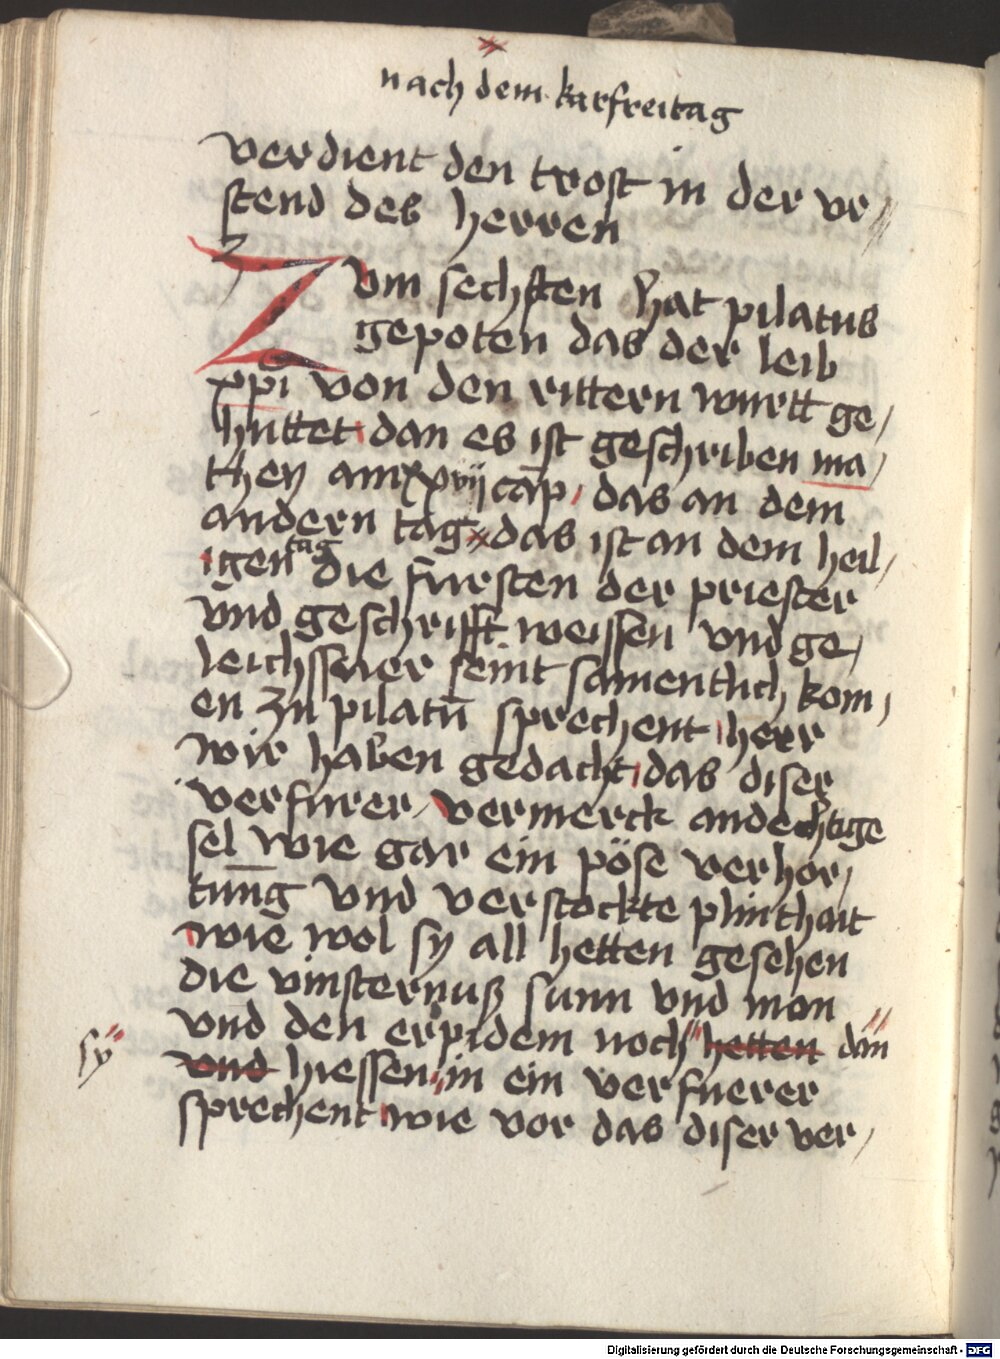 nach dem karfreitag
verdient den trost in der vr//
stend des herren
Zvm sechsten hat pilatus
gepoten das der leib
xp̄i von den rittern wurtt ge/
huttet dan es ist geschriben ma/
they am xxvij cap / das an dem
andern tag das ist an dem heil/
igen tag die fursten der priester
vnd geschrifft weissen vnd ge/
leichssner seint samentlich kom/
en zu pilatū sprechent herr
wir haben gedacht das diser
verfurer / vermerck andechtige
sel wie gar ein pöse verhor/
kung vnd verstockte plinthait
wie wol sy all hetten gesehen
die vinsternuß sunn vnd mon
vnd den erpidem noch" hetten dan"
sy"
vnd hiessen in ein verfuerer
sprechent wie vor das diser ver/
Digitalisierung gefördert durch die Deutsche Forschungsgemeinschaft - DFG